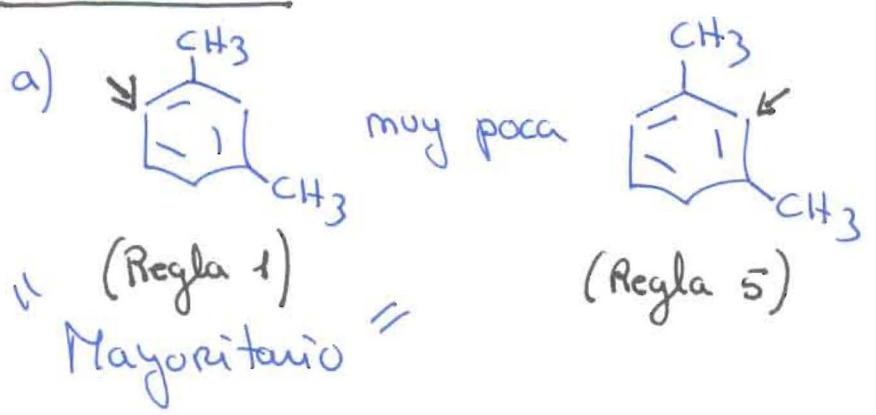 a)
CH3
CH3
muy poca
CH3
CH3
(Regla 1)
(Regla 5)
" Mayoritario "